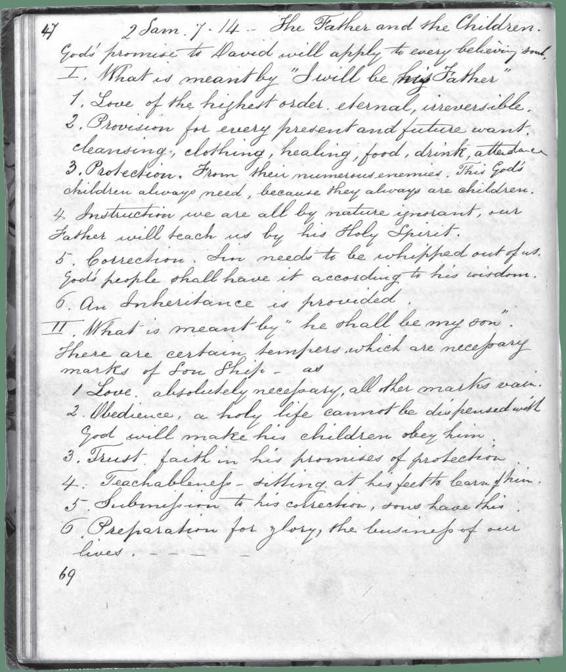 47 2 Sam. 7.14 – The Father and the Children.
God's promise to David will apply to every believing soul.
I. What is meant by "I will be his Father"
1. Love of the highest order. eternal, irreversible.
2. Provision for every present and future want.
cleansing, clothing, healing, food, drink, attendance
3. Protection. From their numerous enemies. This God's
children always need, because they always are children.
4. Instruction we are all by nature ignorant, our
Father will teach us by his Holy Spirit.
5. Correction. Sin needs to be whipped out of us.
God's people shall have it according to his wisdom.
6. An Inheritance is provided.
II. What is meant by "he shall be my son".
There are certain tempers which are necessary
marks of Son Ship – as
1 Love. absolutely necessary, all other marks vain.
2. Obedience, a holy life cannot be dispensed with
God will make his children obey him.
3. Trust. faith in his promises of protection
4. Teachableness – sitting at his feet to learn of him.
5. Submission to his correction, sons have this.
6. Preparation for glory, the business of our
lives. – – – –
69